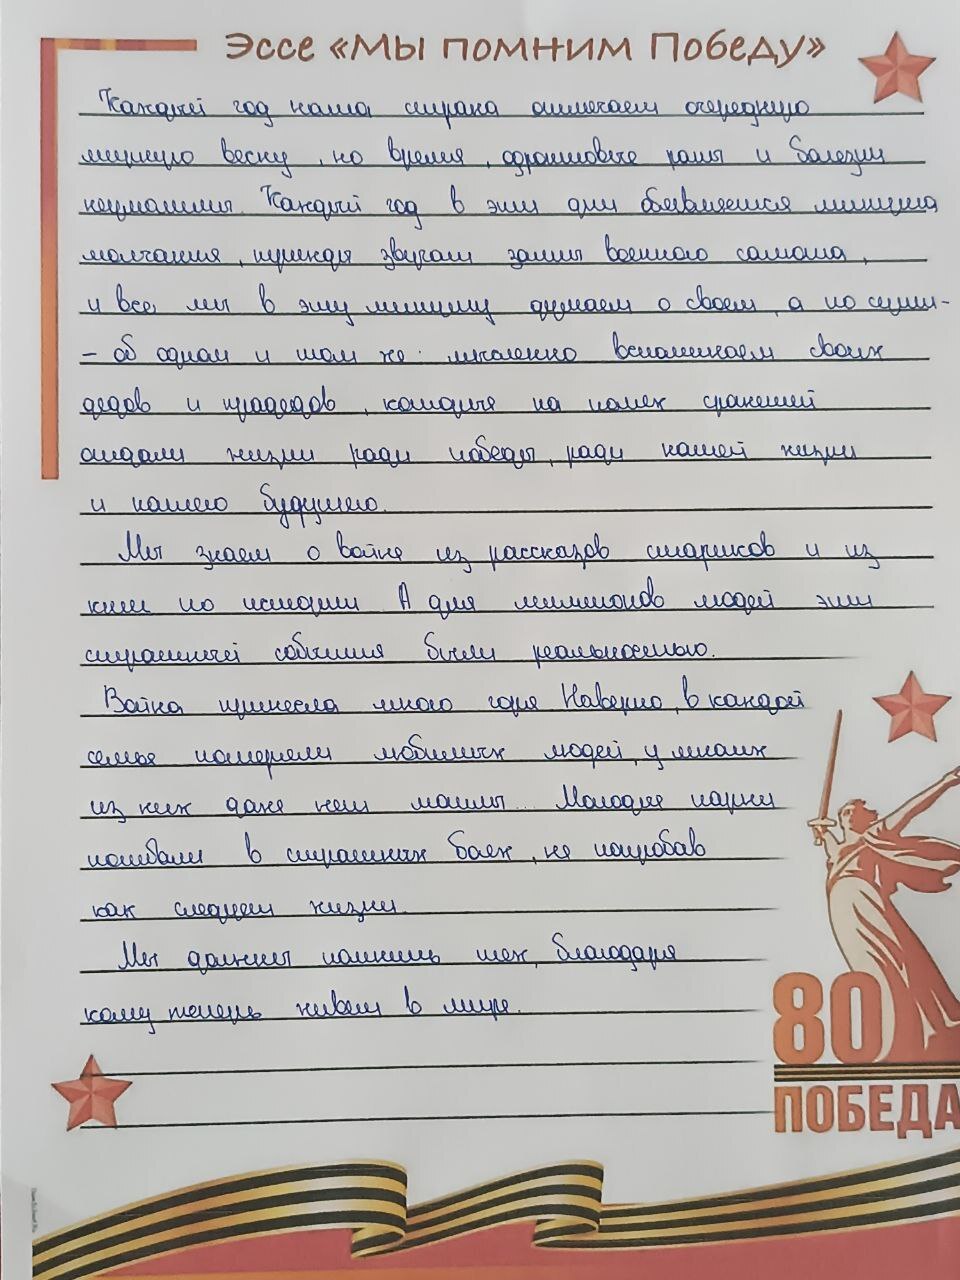 Эссе «Мы помним Победу»
Каждый год наша страна отмечает очередную
мирную весну, но время, фронтовые раны и болезни
неумолимы. Каждый год в эти дни объявляется минута
молчания, трижды звучат залпы военного салюта,
и все мы в эту минуту думаем о своем, а по сути-
- об одном и том же: мысленно вспоминаем своих
дедов и прадедов, которые на полях сражений
отдали жизни ради победы, ради нашей жизни
и нашего будущего.
Мы знаем о войне из рассказов стариков и из
книг по истории. А для миллионов людей эти
страшный события были реальностью.
Война принесла много горя. Наверно, в каждой
семье потеряли любимых людей, у многих
из них даже нет могилы... Молодые парни
погибали в страшных боях, не попробав
как следует жизни.
Мы должны помнить тех, благодаря
кому теперь живем в мире.
80
ПОБЕДА